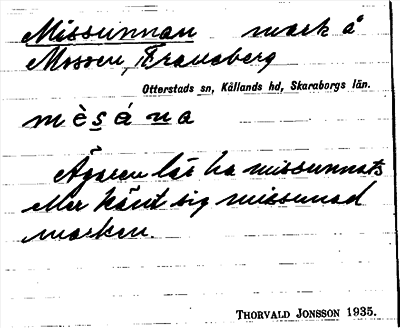 Missunnan mark å
Mossen, Traneberg
Otterstads sn, Kållands hd, Skaraborgs län.
mèsána
Ägaren lär ha missunnats
eller känt sig missunad
marken.
THORVALD JONSSON 1935.